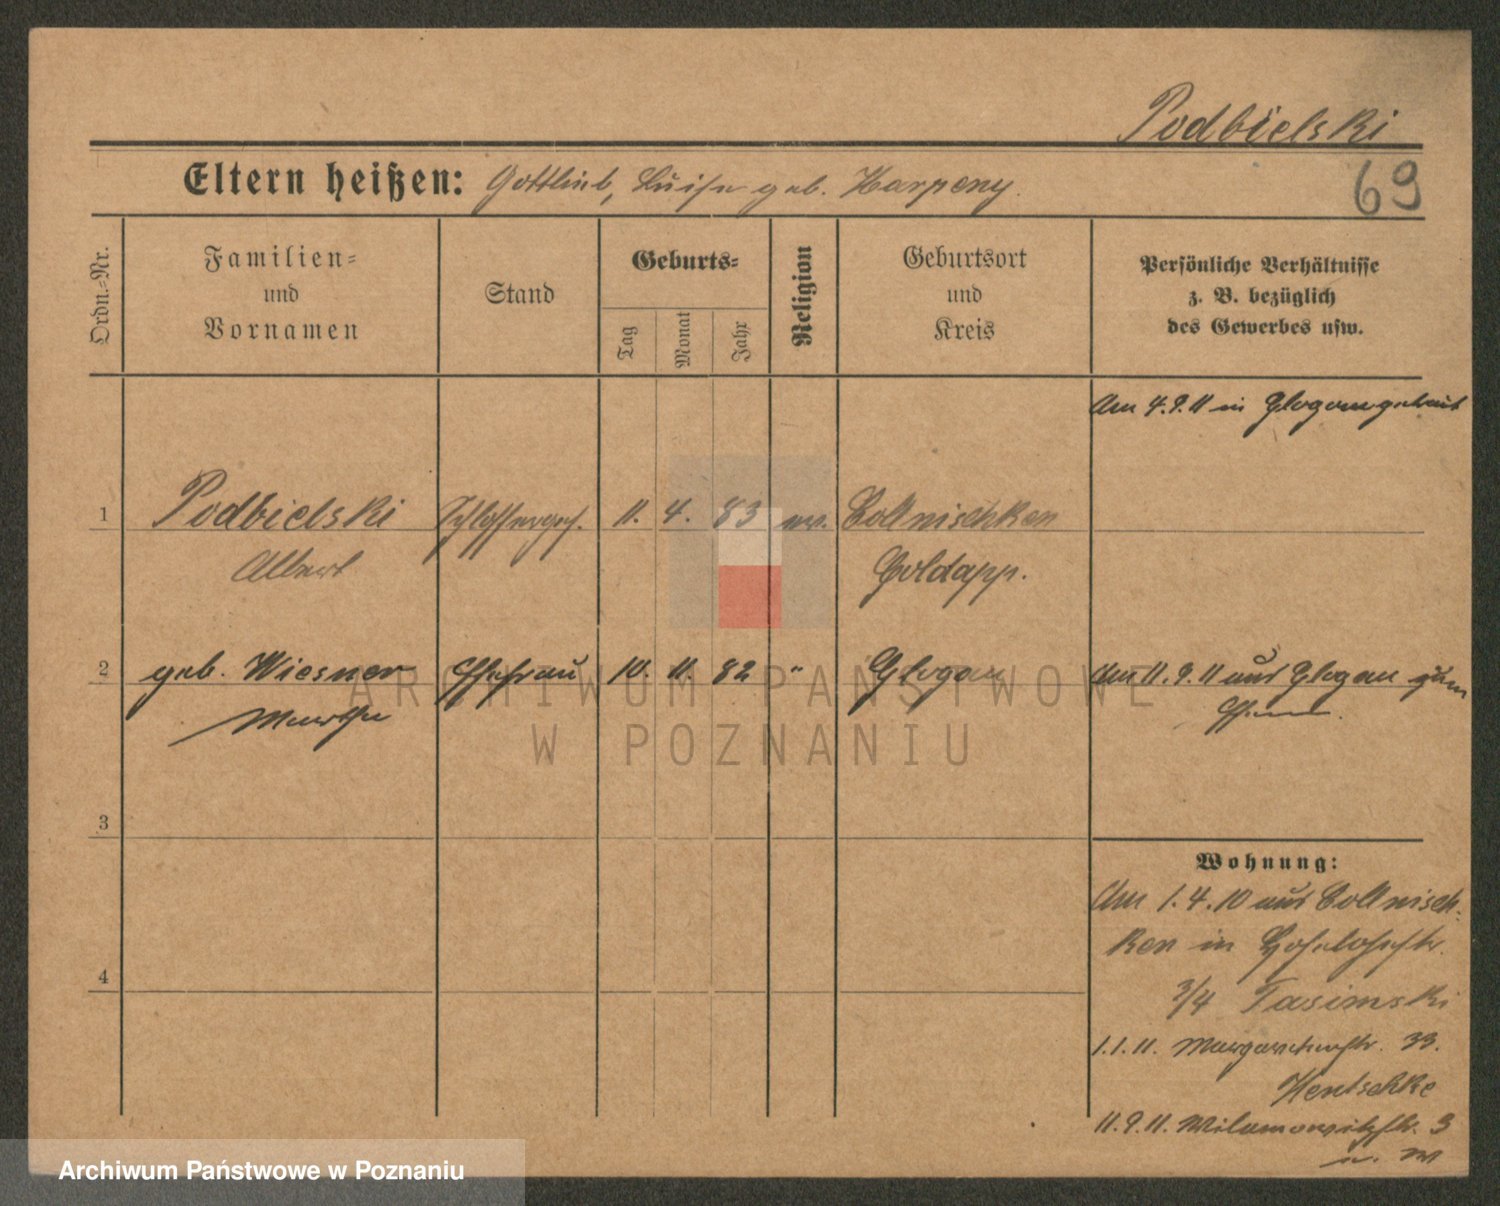 Podbielski
69
Eltern heißen: Gottlieb, Luise geb. Karpeny.
Ordn.=Nr.
Familien=
und
Vornamen
Stand
Geburts=
Tag
Monat
Jahr
Religion
Geburtsort
und
Kreis
Persönliche Verhältnisse
z. B. bezüglich
des Gewerbes usw.
Am 4.9.11 in Glogau getraut
1 Podbielski Schlosserges. 11. 4. 83 ev. Collnischken
Albert Goldapp.
2 geb. Wiesner Ehefrau 10. 11. 82 " Glogau Am 11.9.11 aus Glogau zum
Martha
3
4
Wohnung:
Am 1.4.10 aus Collnisch-
ken in
3/4 Tasimski
1.1.11. Margarethenstr. 33.
Hentschke
11.9.11. Wilamowitzstr. 3
ARCHIWUM PAŃSTWOWE
W POZNANIU
Archiwum Państwowe w Poznaniu